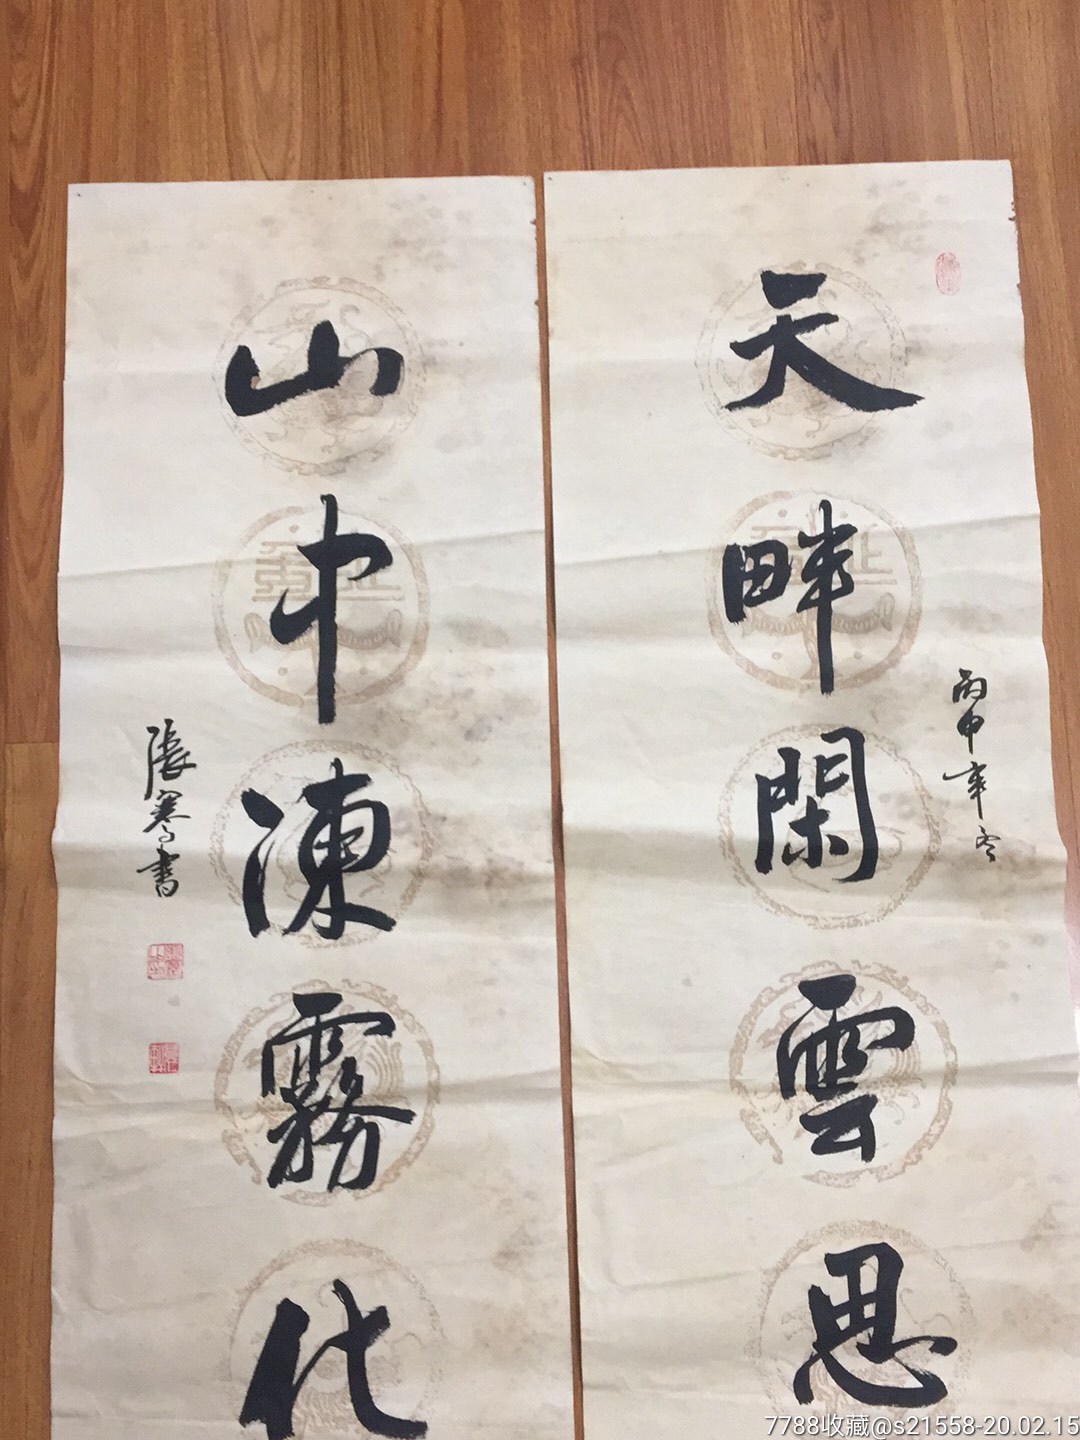 天畔閑雲思
丙申年冬
山中凍霧化
張寒書
7788收藏@s21558-20.02.15